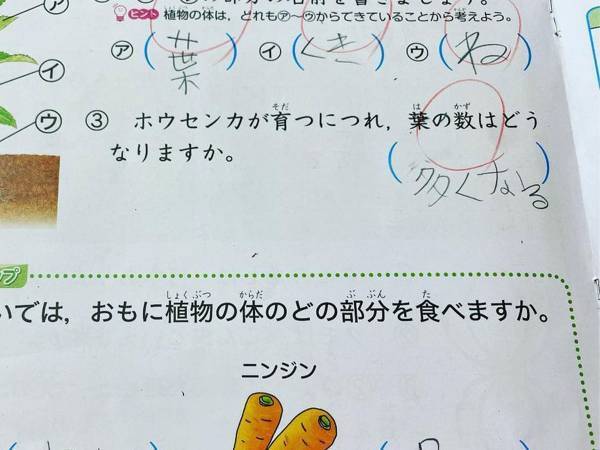 ヒント 植物の体は,どれも㋐~㋒からできていることから考えよう。
㋐(葉) ㋑(くき) ㋒(ね)
㋐
㋑
㋒
③ ホウセンカが育つにつれ,葉の数はどう
なりますか。
(多くなる)
いでは,おもに植物の体のどの部分を食べますか。
ニンジン